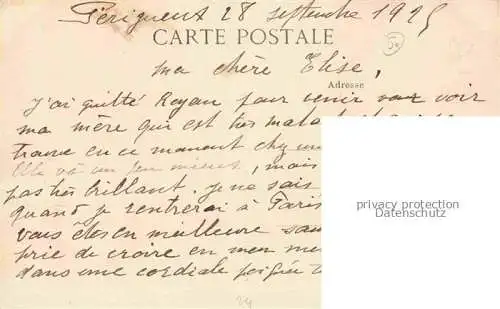 Périgueux 28 septembre 1925
CARTE POSTALE
ma chère Elise,
Adresse
J'ai quitté Royan pour venir voir
ma mère qui est très
trouve en ce moment chez
Elle va un peu mieux, mais
pas très brillant. je ne sais
quand je rentrerai à Paris
vous êtes en meilleure
prie de croire en mon
dans une cordiale poignée
privacy protection
Datenschutz